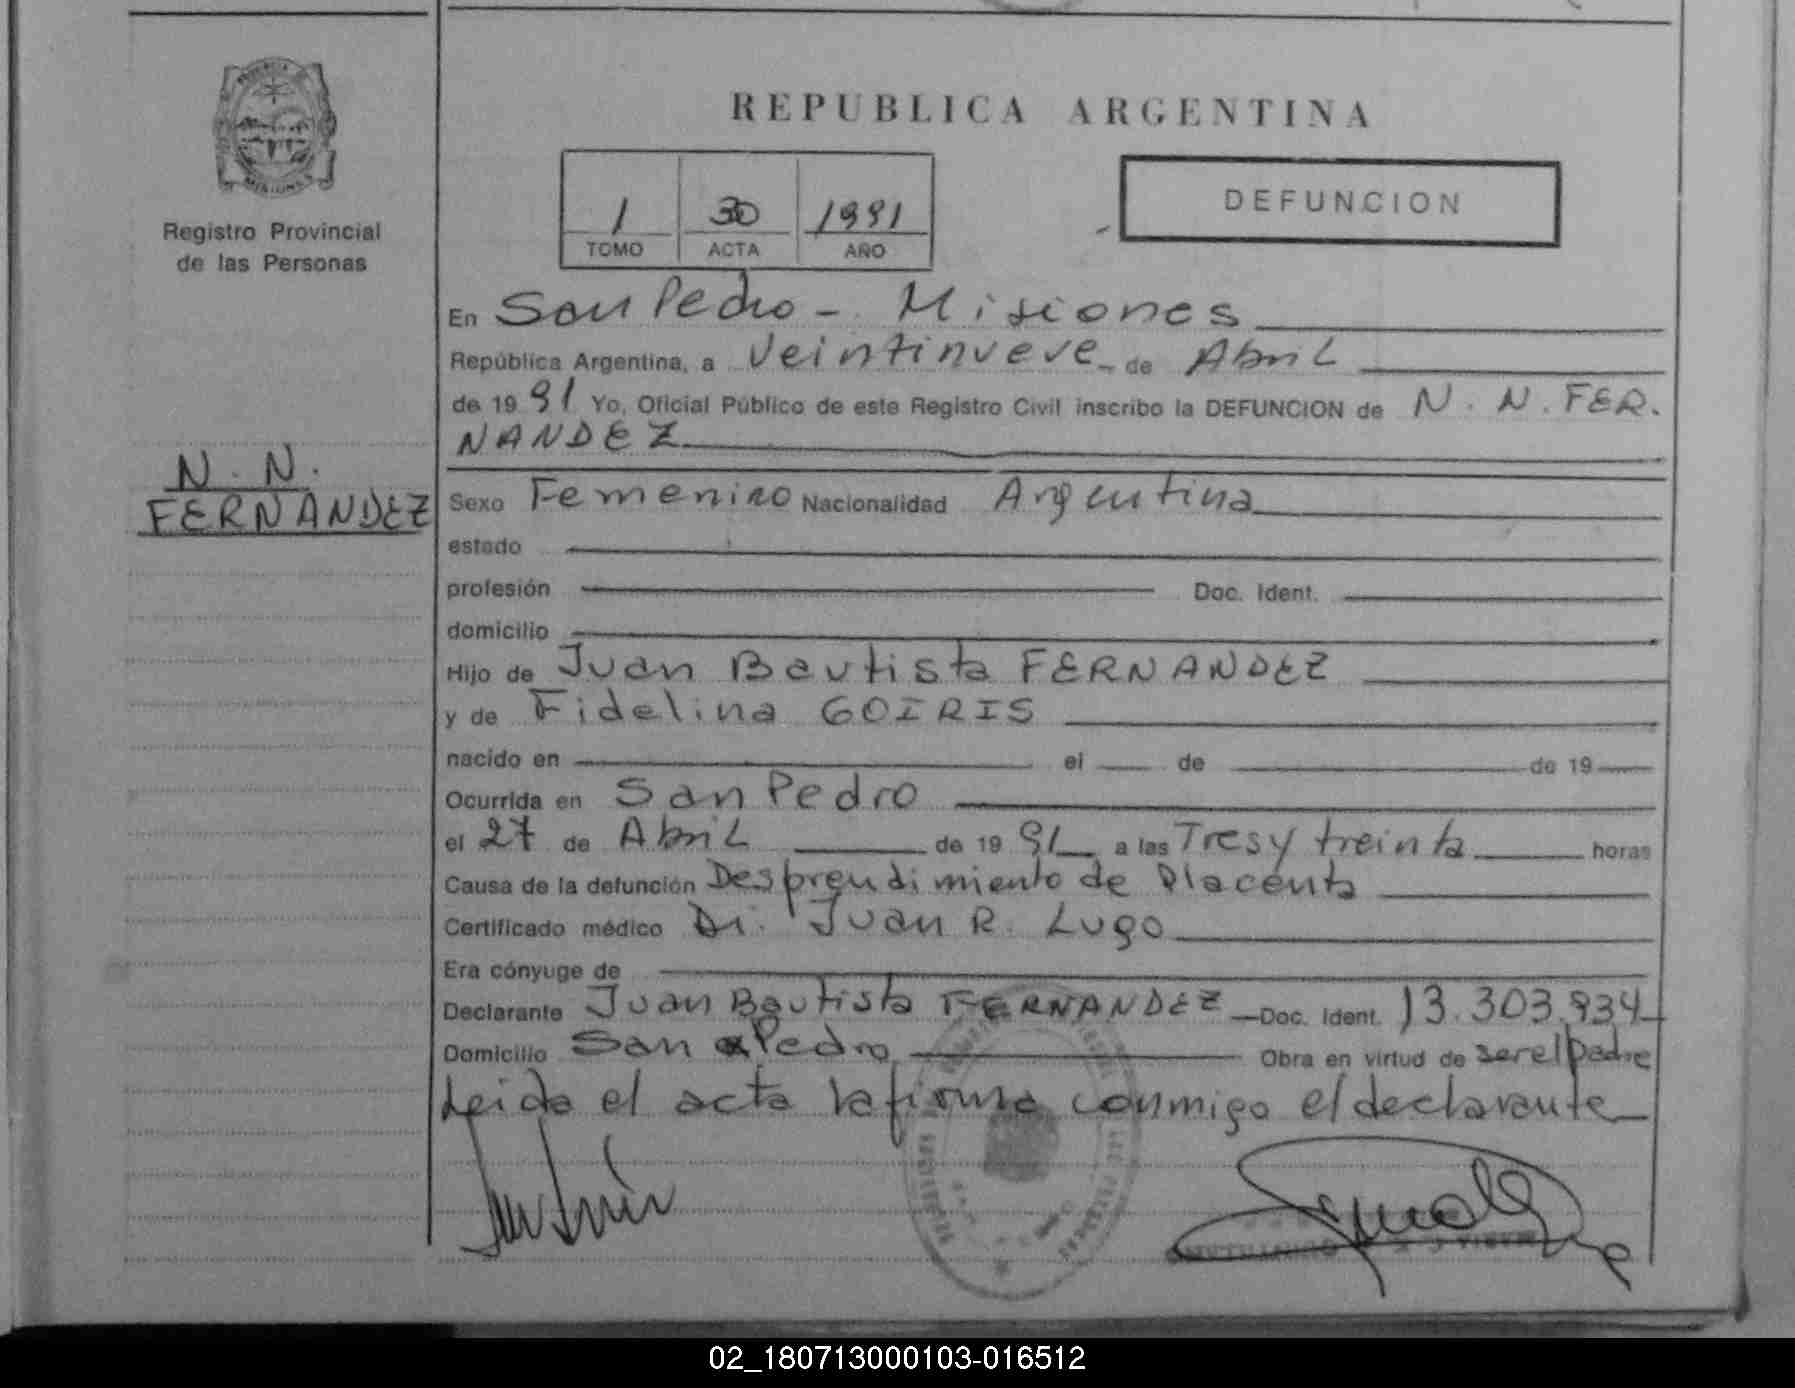 PROVINCIA DE
MISIONES
Registro Provincial
de las Personas
N. N.
FERNANDEZ
REPUBLICA ARGENTINA
1 30 1991
TOMO ACTA AÑO
DEFUNCION
En San Pedro - Misiones
República Argentina, a Veintinueve de Abril
de 1991 Yo, Oficial Público de este Registro Civil inscribo la DEFUNCION de N. N. FER.
NANDEZ
Sexo Femenino Nacionalidad Argentina
estado
profesión Doc. Ident.
domicilio
Hijo de Juan Bautista FERNANDEZ
y de Fidelina GOIRIS
nacido en el de de 19
Ocurrida en San Pedro
el 27 de Abril de 1991 a las Tres y treinta horas
Causa de la defunción Desprendimiento de Placenta
Certificado médico Dr. Juan R. Lugo
Era cónyuge de
Declarante Juan Bautista FERNANDEZ Doc. Ident. 13.303.934
Domicilio San Pedro Obra en virtud de ser el padre
Leida el acta la firma conmigo el declarante
02_180713000103-016512